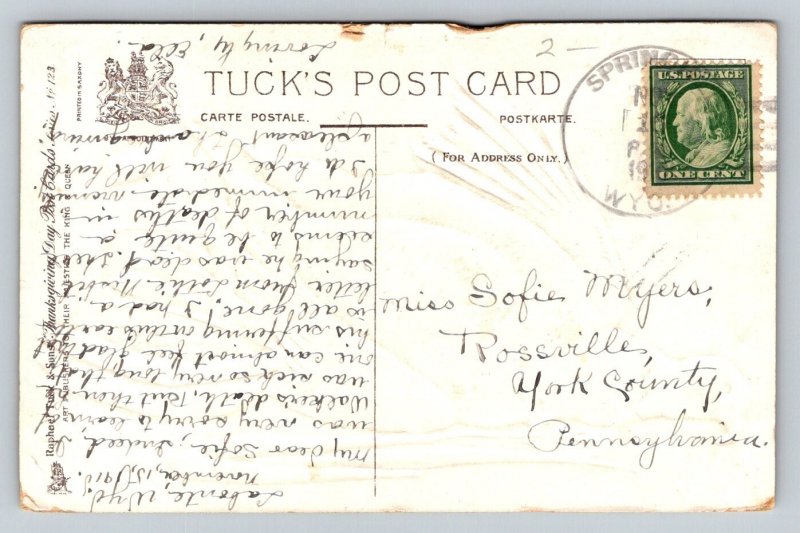 Labonte, Wyo.
November, 15, 1910.
My dear Sofie; Indeed I
was very sorry to learn of
Walker's death, But then he
was sick so very long that
one can almost feel glad that
his suffering on this earth
is all gone. I had a
letter from Lottie
saying he was dead. There
seems to be quite a
number of deaths in
your immediate
I do hope you will have
a pleasant
Lovingly, Ella.
TUCK'S POST CARD
CARTE POSTALE.
POSTKARTE.
(FOR ADDRESS ONLY.)
PRINTED IN SAXONY
Raphael Tuck & Sons' Thanksgiving Day Post Cards Series No 123.
ART PUBLISHERS TO THEIR MAJESTIES THE KING & QUEEN
2 –
SPRING
WYO.
U.S. POSTAGE
ONE CENT
Miss Sofie Myers,
Rossville,
York County,
Pennsylvania.